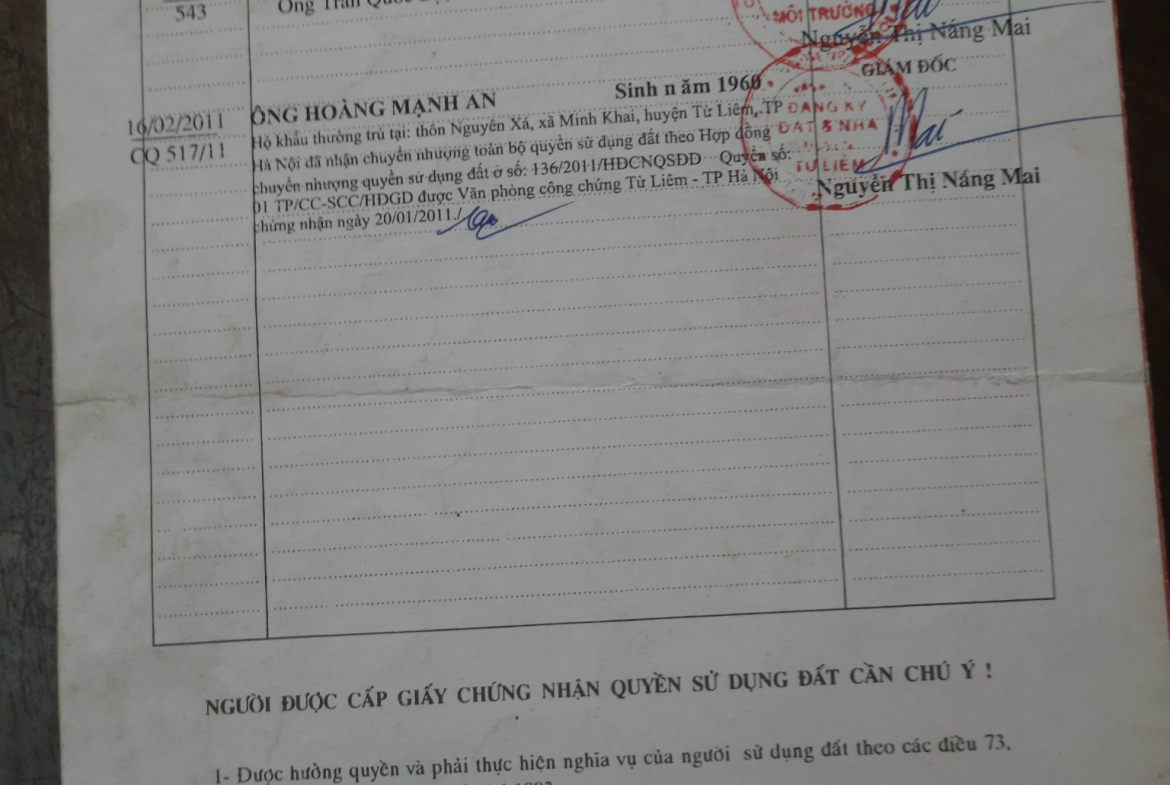 543
Ông Trần
MÔI TRƯỜNG
Nguyễn Thị Nắng Mai
GIÁM ĐỐC
16/02/2011
CQ 517/11
ÔNG HOÀNG MẠNH AN Sinh n ăm 1960
Hộ khẩu thường trú tại: thôn Nguyên Xá, xã Minh Khai, huyện Từ Liêm, TP
Hà Nội đã nhận chuyển nhượng toàn bộ quyền sử dụng đất theo Hợp đồng
chuyển nhượng quyền sử dụng đất ở số: 136/2011/HĐCNQSDĐ Quyển số:
01 TP/CC-SCC/HDGD được Văn phòng công chứng Từ Liêm - TP Hà Nội
chứng nhận ngày 20/01/2011./
ĐĂNG KÝ
ĐẤT & NHÀ
TỪ LIÊM
Mai
Nguyễn Thị Nắng Mai
NGƯỜI ĐƯỢC CẤP GIẤY CHỨNG NHẬN QUYỀN SỬ DỤNG ĐẤT CẦN CHÚ Ý !
1- Được hưởng quyền và phải thực hiện nghĩa vụ của người sử dụng đất theo các điều 73,